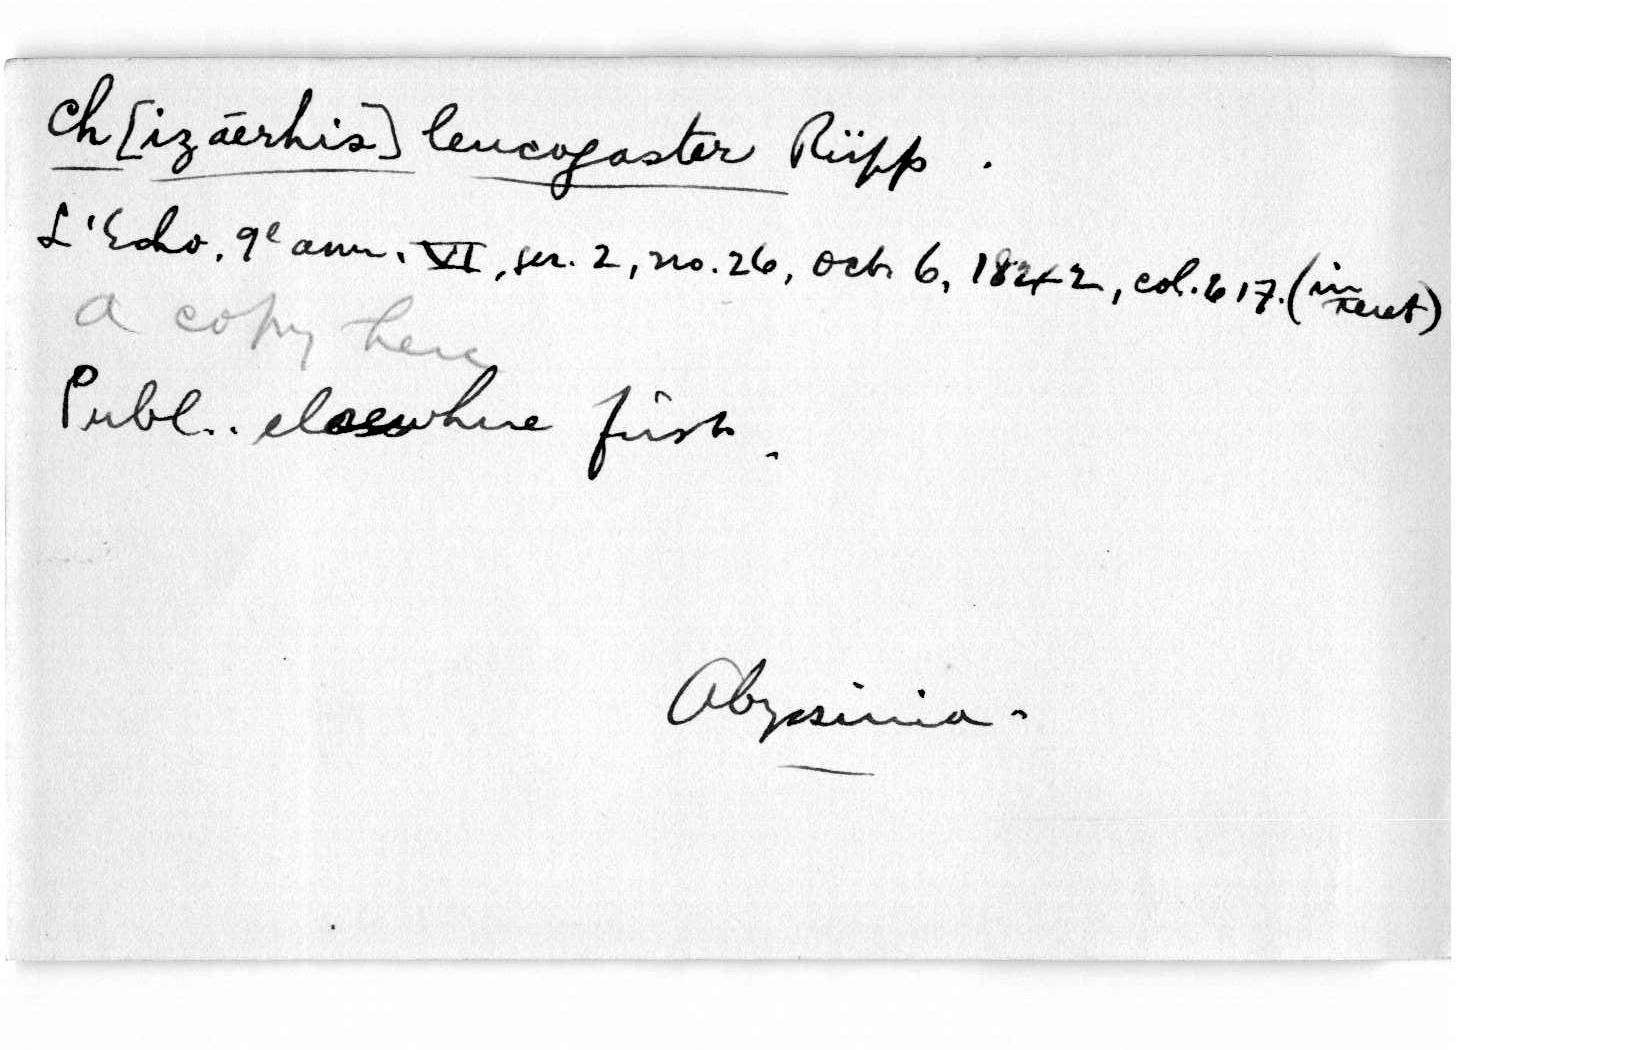 Ch[izäerhis] leucogaster Rüpp.
L'Echo, 9e ann. VI, ser. 2, no. 26, Oct. 6, 1842, col. 617. (in text)
a copy here
Publ.. elsewhere first.
Abyssinia.